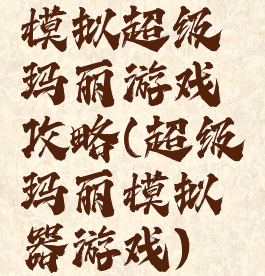 模拟超级
玛丽游戏
攻略(超级
玛丽模拟
器游戏)